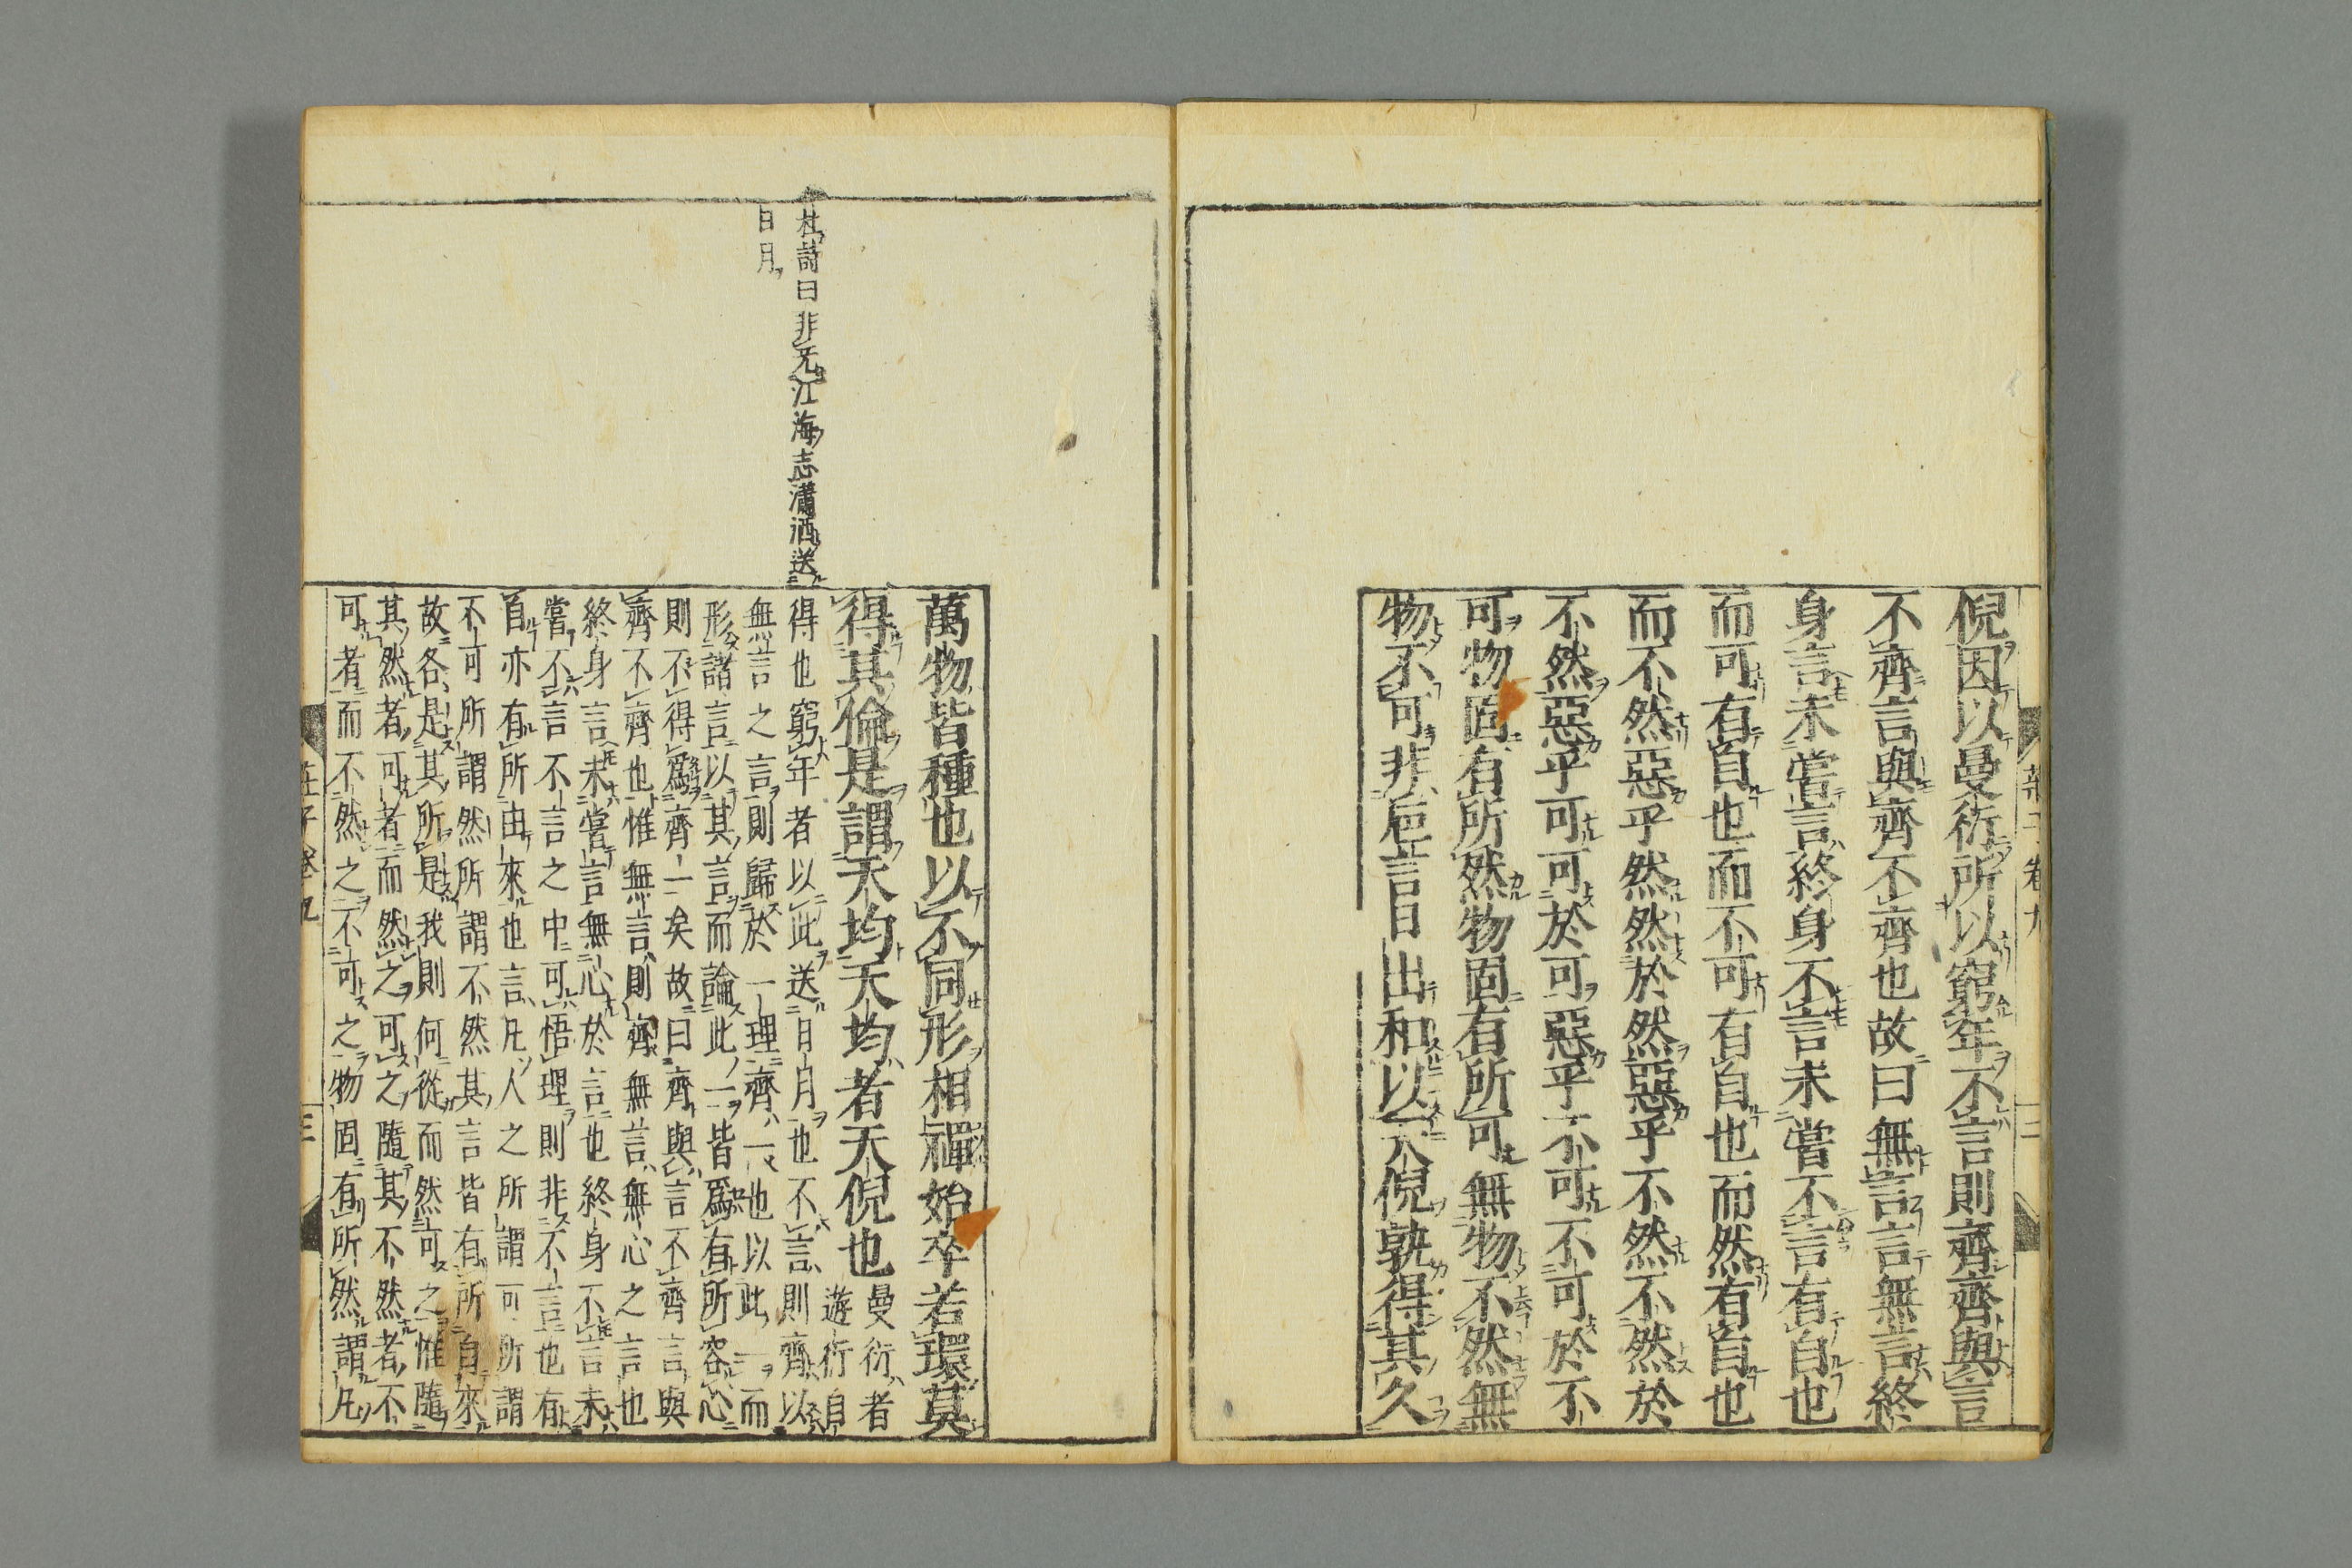 倪因以曼衍所以窮年不言則齊齊與言
不齊言與齊不齊也故曰無言言無言終
身言未嘗言終身不言未嘗不言有自也
而可有自也而不可有自也而然有自也
而不然惡乎然然於然惡乎不然不然於
不然惡乎可可於可惡乎不可不可於不
可物固有所然物固有所可無物不然無
物不可非巵言日出和以天倪孰得其久
萬物皆種也以不同形相禪始卒若環莫
得其倫是謂天均天均者天倪也曼衍者
遊衍自
得也窮年者以此送日月也不言則齊以
無言之言則歸於一理齊一也以此一而
形諸言以其言而論此一皆爲有所容心
則不得爲齊一矣故曰齊與言不齊言與
齊不齊也惟無言則齊無言無心之言也
終身言未嘗言無心於言也終身不言未
嘗不言不言之中可悟理則非不言也有
自亦有所由來也言凡人之所謂可所謂
不可所謂然所謂不然其言皆有所自來
故各是其所是我則何從而然可之惟隨
其然者可者而然之可之隨其不然者不
可者而不然之不可之物固有所然謂凡
杜詩曰非无江海志瀟洒送
日月
莊子卷九
三